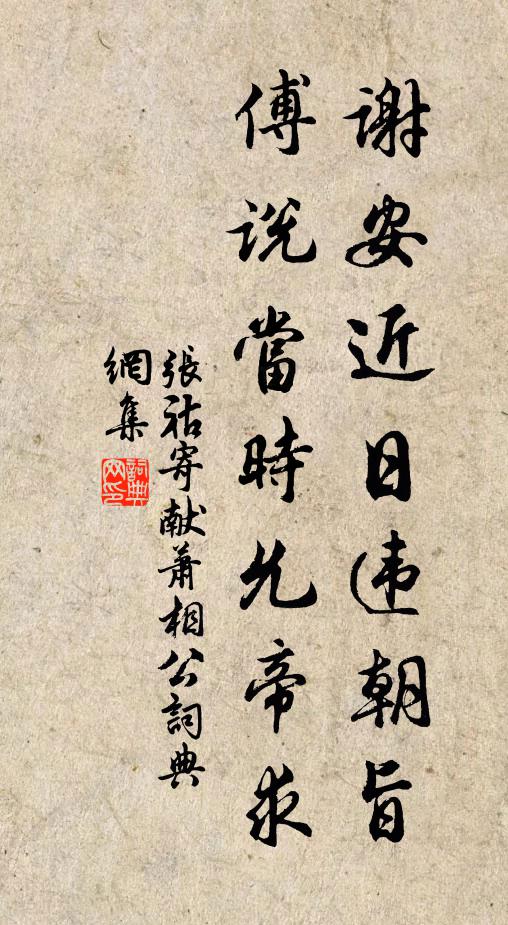 谢安近日违朝旨
傅说當時允帝求
張祜寄献蕭相公詞典
網集
詞典網印